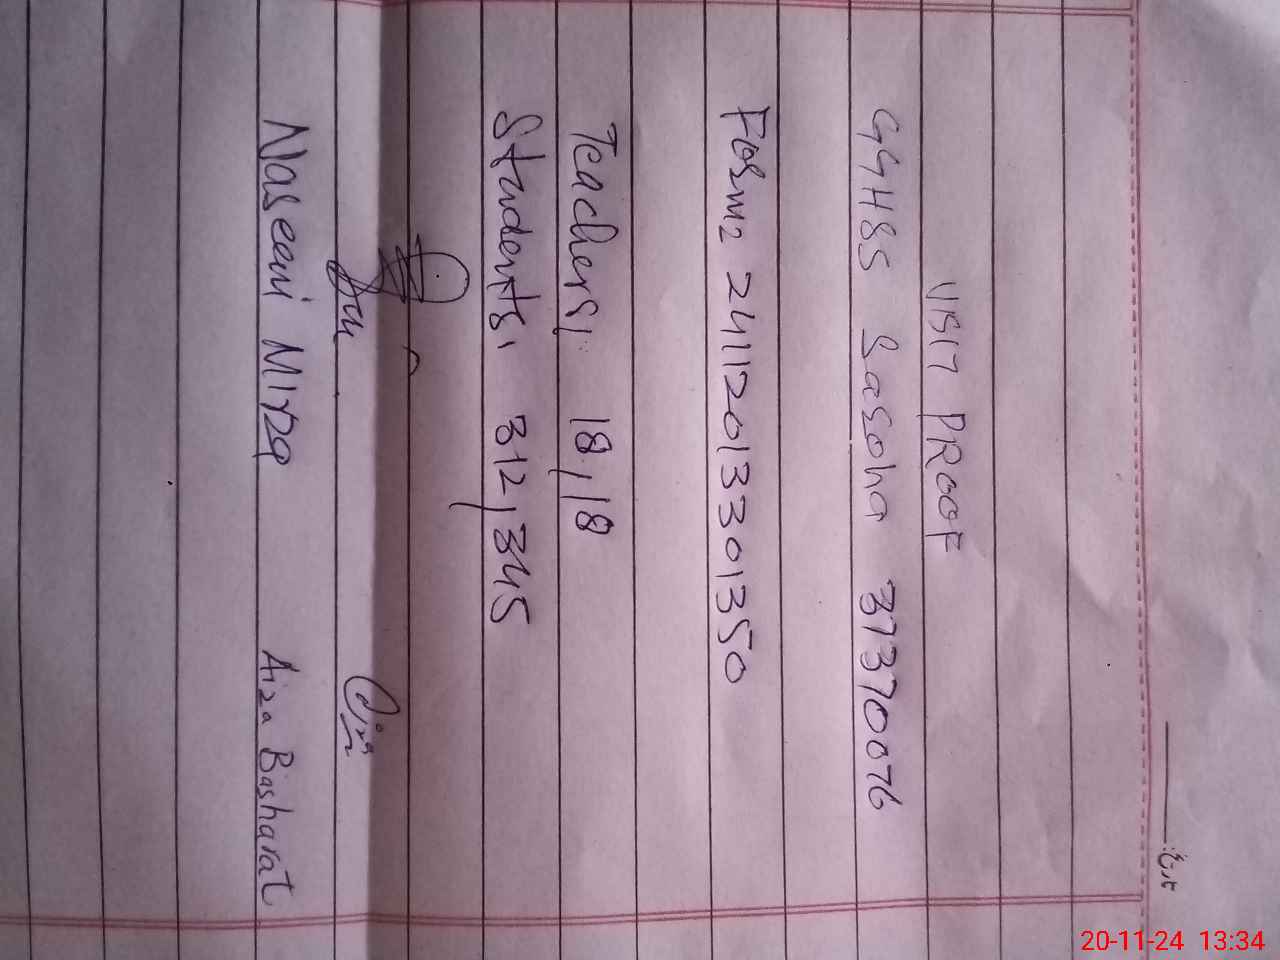 تاریخ:
VISIT PROOF
GGHSS Sasoha 37370076
Form2 24112013301350
Teachers, 18,18
Students, 312,345
Naseem Mirza Aiza Basharat
20-11-24 13:34